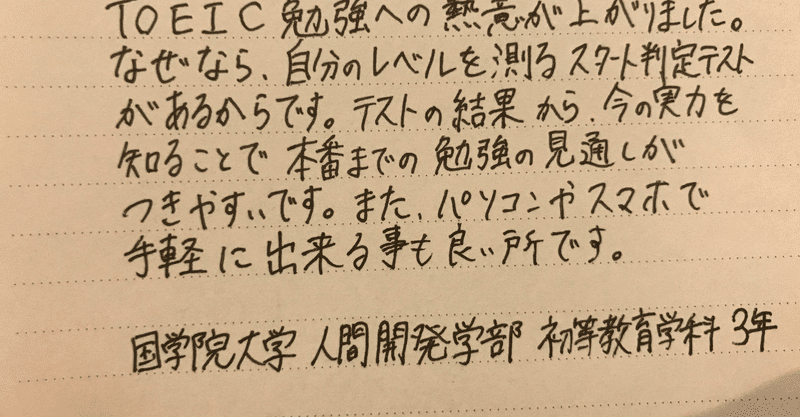 TOEIC 勉強への熱意が上がりました。
なぜなら、自分のレベルを測るスタート判定テスト
があるからです。テストの結果から、今の実力を
知ることで本番までの勉強の見通しが
つきやすいです。また、パソコンやスマホで
手軽に出来る事も良い所です。
国学院大学 人間開発学部 初等教育学科 3年